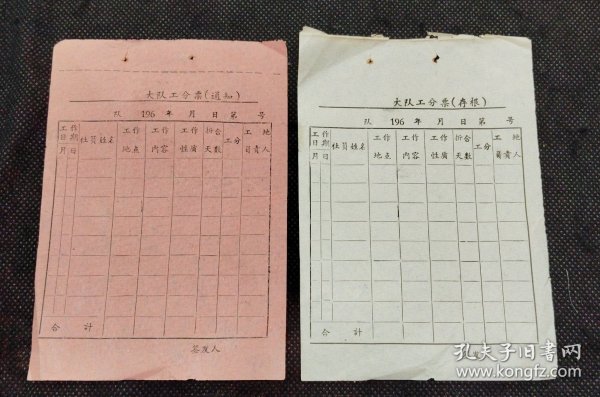 大队工分票(通知)
队 196 年 月 日 第 号
工作日期 社員姓名 工作地点 工作内容 工作性质 折合天数 工分 工地負責人
月 日
合計
签发人
大队工分票(存根)
队 196 年 月 日 第 号
工作日期 社員姓名 工作地点 工作内容 工作性质 折合天数 工分 工地負責人
月 日
合計
孔夫子旧书网
www.kongfz.com